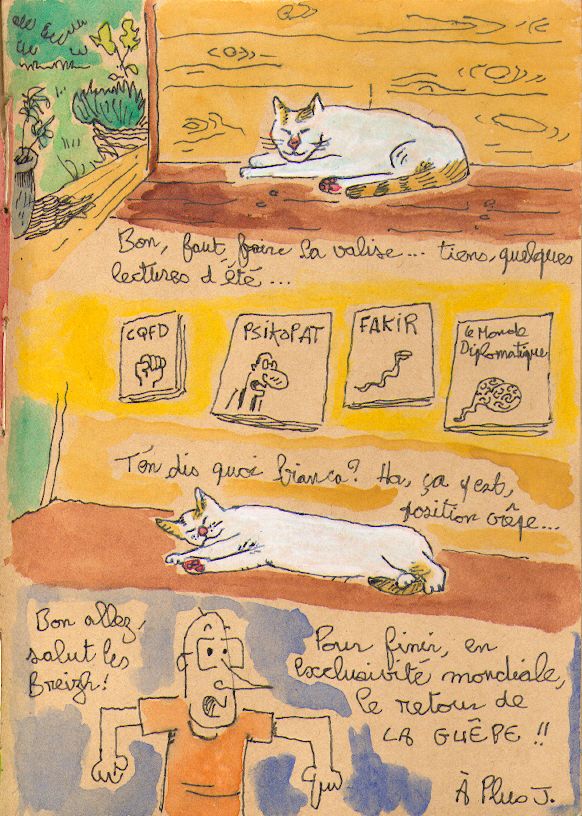 Bon, faut faire la valise... tiens, quelques
lectures d'été...
CQFD
PSIKOPAT
FAKIR
Le Monde
Diplomatique
T'en dis quoi bianca? Ha, ça yest,
position crêpe...
Bon allez,
salut les
Breizh!
Pour finir, en
exclusivité mondiale,
le retour de
LA GUÊPE !!
À Plus J.